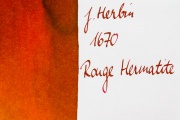 J. Herbin
1670
Rouge Hematite